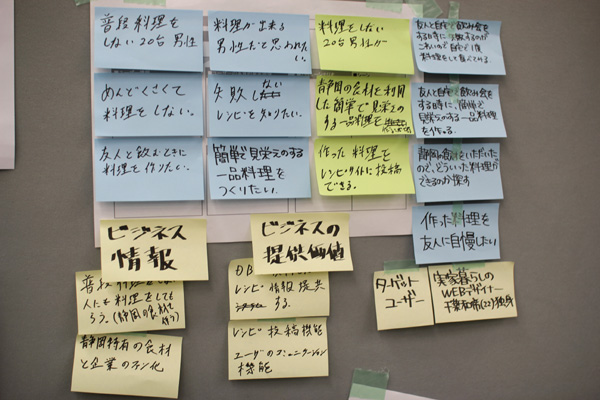 普段料理を
しない20台男性
料理が出来る
男性だと思われた
い。
料理をしない
20台男性!!
友人と自宅で飲み会を
する時に
めんどくさくて
料理をしない。
失敗しない
レシピを知りたい。
静岡の食材を利用
した簡単で見栄えの
する一品料理を
友人と自宅で飲み会を
する時に、簡単で
見栄えのする一品料理
を作る。
友人と飲むときに
料理を作りたい。
簡単で見栄えのする
一品料理を
つくりたい。
作った料理を
レシピサイトに投稿
できる。
静岡の食材をいただいた
ので、どういった料理が
できるのか探す
作った料理を
友人に自慢したい
ビジネス
情報
ビジネスの
提供価値
人にも料理をしても
らう。
静岡特有の食材
と企業の
レシピ情報提供
する。
レシピ投稿機能
ユーザのコミュニケーション
機能
ターゲット
ユーザー
実家暮らしの
WEBデザイナー
(22)独身